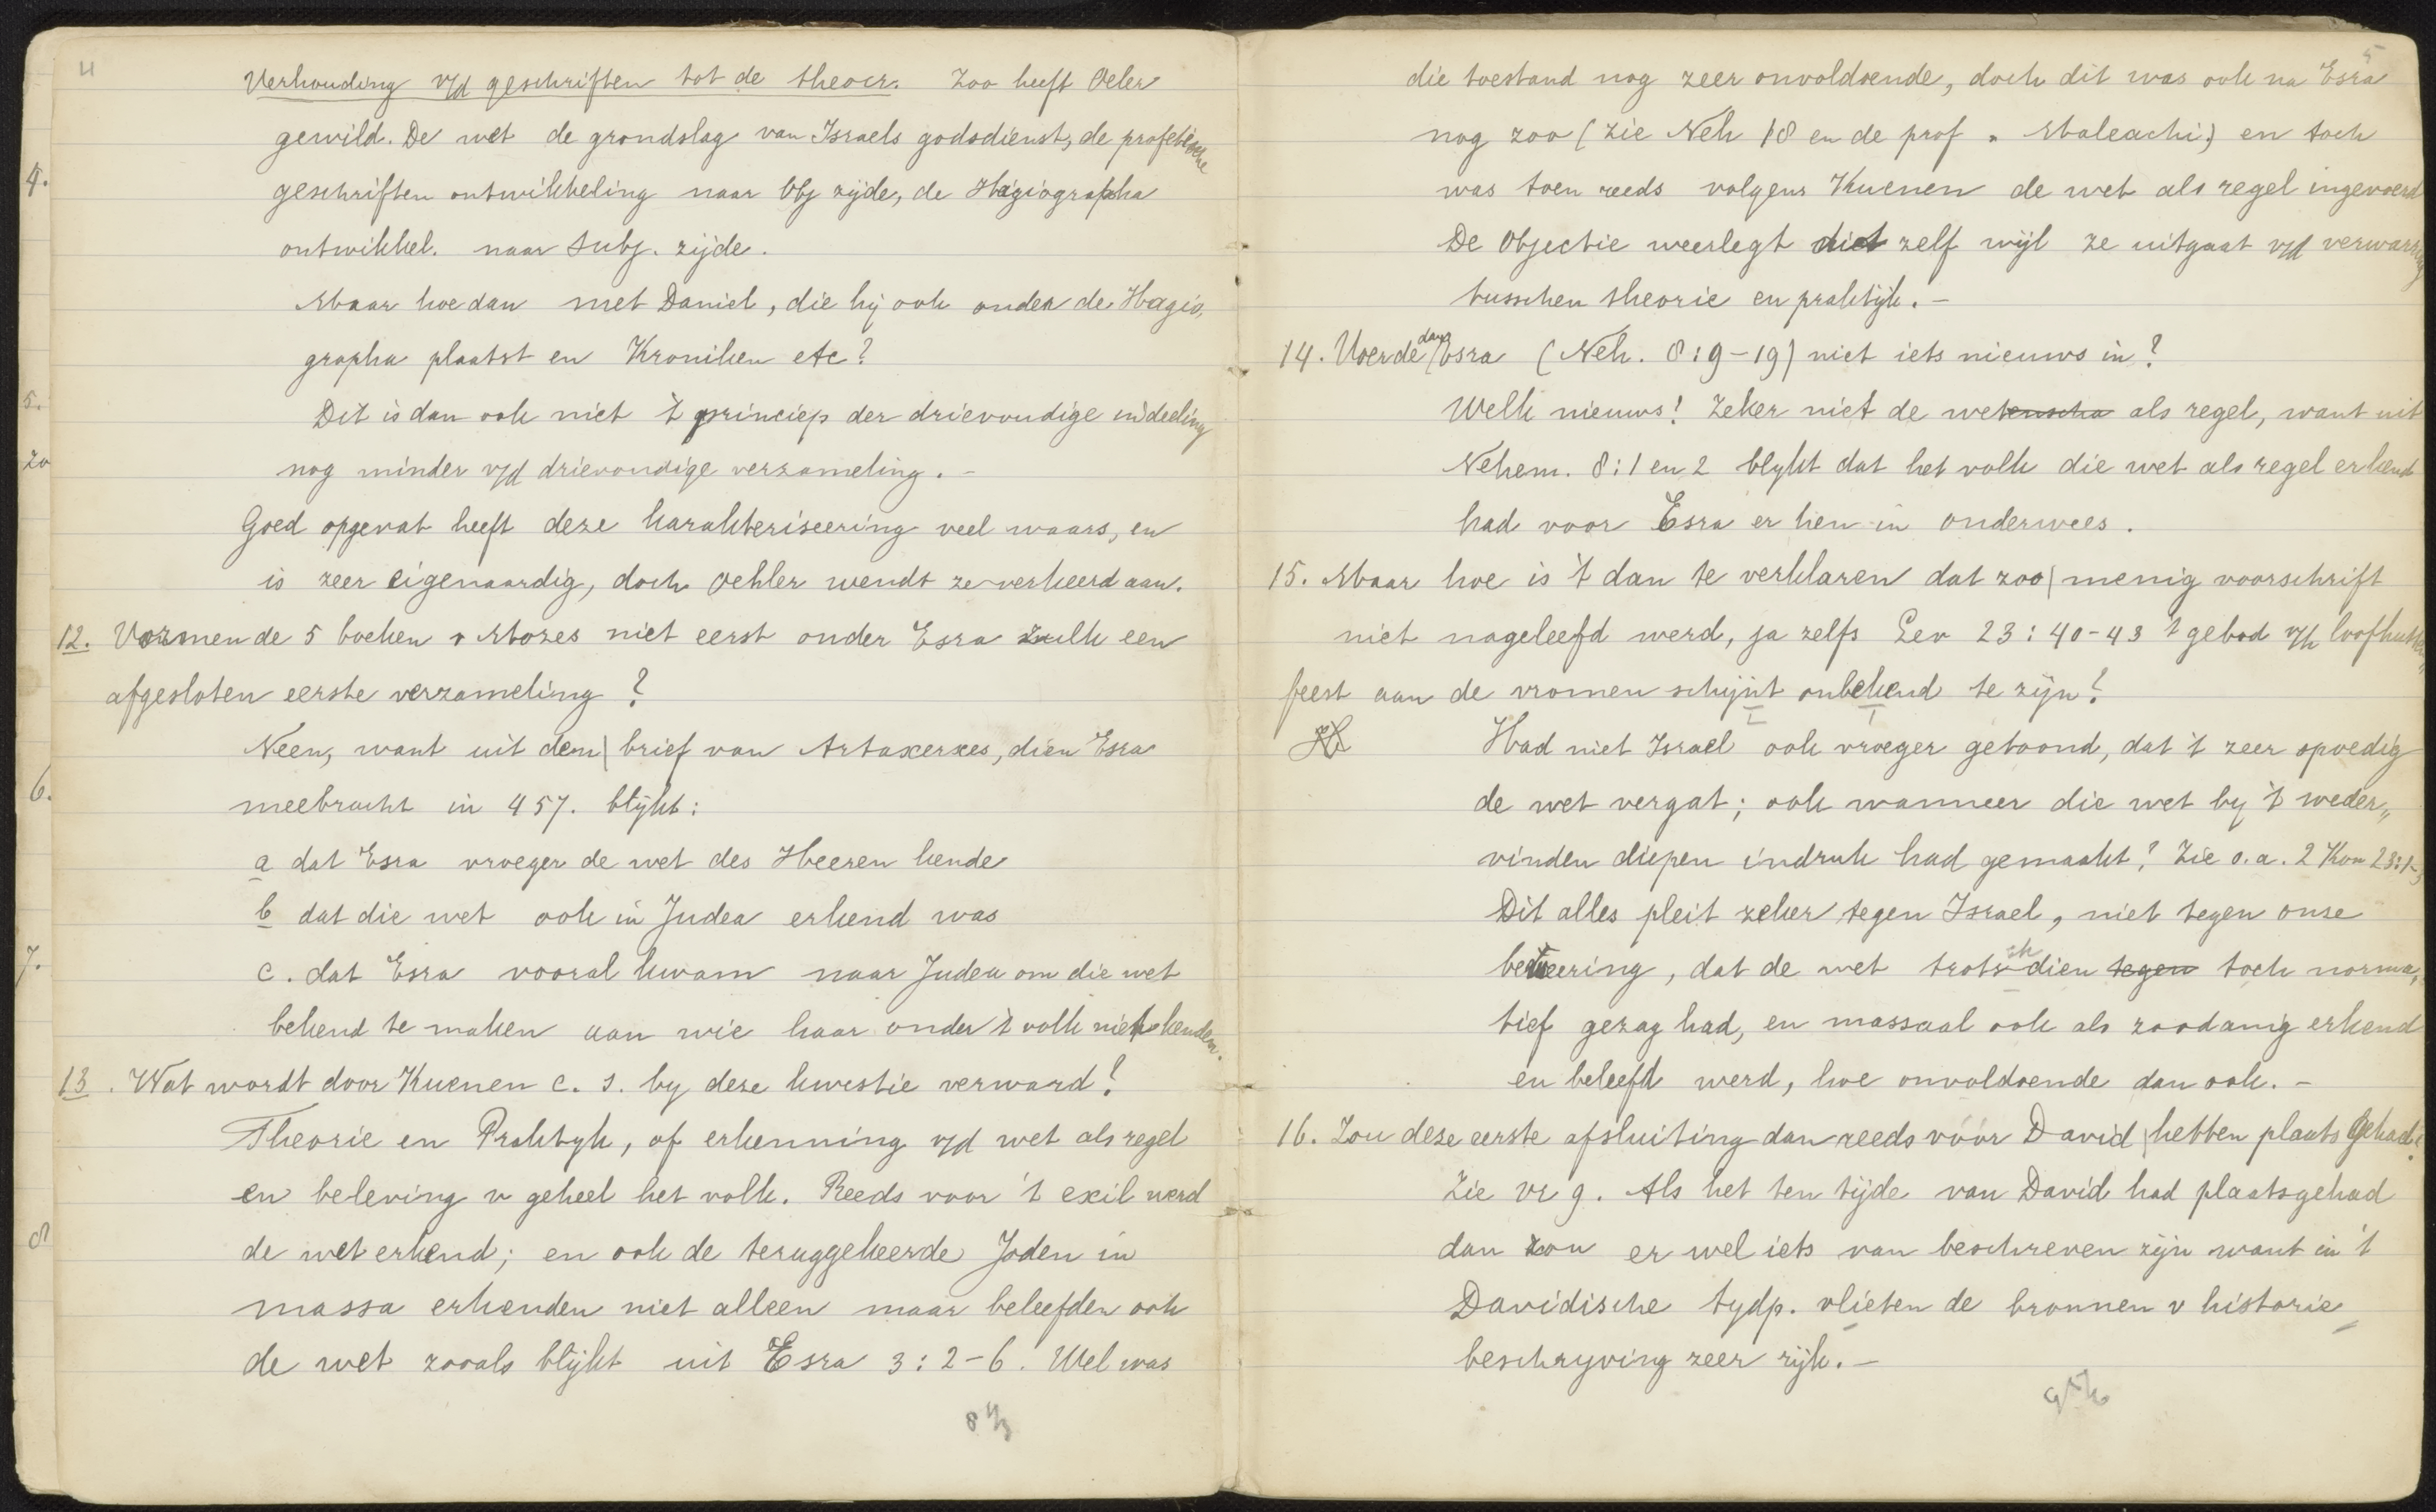 4
Verhouding v/d geschriften tot de theocr. Zoo heeft Oeler
gewild. De wet de grondslag van Israels godsdienst, de profetische
geschriften ontwikkeling naar Obj zijde, de Hagiographa
ontwikkel. naar Subj. zijde.
Maar hoe dan met Daniel, die hij ook onder de Hagio,
grapha plaatst en Kronieken etc?
Dit is dan ook niet 't princiep der drievoudige indeeling
nog minder v/d drievoudige verzameling. -
Goed opgevat heeft deze karakteriseering veel waars, en
is zeer eigenaardig, doch Oehler wendt ze verkeerd aan.
12. Vormen de 5 boeken v Mozes niet eerst onder Esra zulk een
afgesloten eerste verzameling?
Neen, want uit den brief van Artaxerxes, dien Esra
meebracht in 457. blijkt:
a dat Esra vroeger de wet des Heeren kende
b dat die wet ook in Judea erkend was
c. dat Esra vooral kwam naar Judea om die wet
bekend te maken aan wie haar onder 't volk niet kenden.
13. Wat wordt door Kuenen c. s. by deze kwestie verward?
Theorie en Praktyk, of erkenning v/d wet als regel
en beleving v geheel het volk. Reeds voor 't exil werd
de wet erkend; en ook de teruggekeerde Joden in
massa erkenden niet alleen maar beleefden ook
de wet zooals blijkt uit Esra 3:2-6. Wel was
4.
5.
20
6.
7.
8
5
die toestand nog zeer onvoldoende, doch dit was ook na Esra
nog zoo (zie Neh 18 en de prof. Maleachi) en toch
was toen reeds volgens Kuenen de wet als regel ingevoerd
De Objectie weerlegt zich zelf wijl ze uitgaat v/d verwarring
tusschen theorie en praktijk. -
14. Voerde dan Esra (Neh. 8:9-19) niet iets nieuws in?
Welk nieuws! Zeker niet de wetenscha als regel, want uit
Nehem. 8:1 en 2 blykt dat het volk die wet als regel erkend
had voor Esra er hen in onderwees.
15. Maar hoe is 't dan te verklaren dat zoo menig voorschrift
niet nageleefd werd, ja zelfs Lev 23:40-43 't gebod v/h loofhutten,,
feest aan de vromen schijnt onbekend te zijn?
Had niet Israel ook vroeger getoond, dat 't zeer spoedig
de wet vergat; ook wanneer die wet by 't weder,,
vinden diepen indruk had gemaakt? Zie o.a. 2 Kon 23:1-3
Dit alles pleit zeker tegen Israel, niet tegen onse
bewering, dat de wet trots dien tegen toch norma,
tief gezag had, en massaal ook als zoodanig erkend
en beleefd werd, hoe onvoldoende dan ook. -
16. Zou deze eerste afsluiting dan reeds vóór David hebben plaats gehad?
Zie vr 9. Als het ten tijde van David had plaatsgehad
dan zou er wel iets van beschreven zijn want in 't
Davidische tydp. vlieten de bronnen v historie
beschryving zeer rijk. -